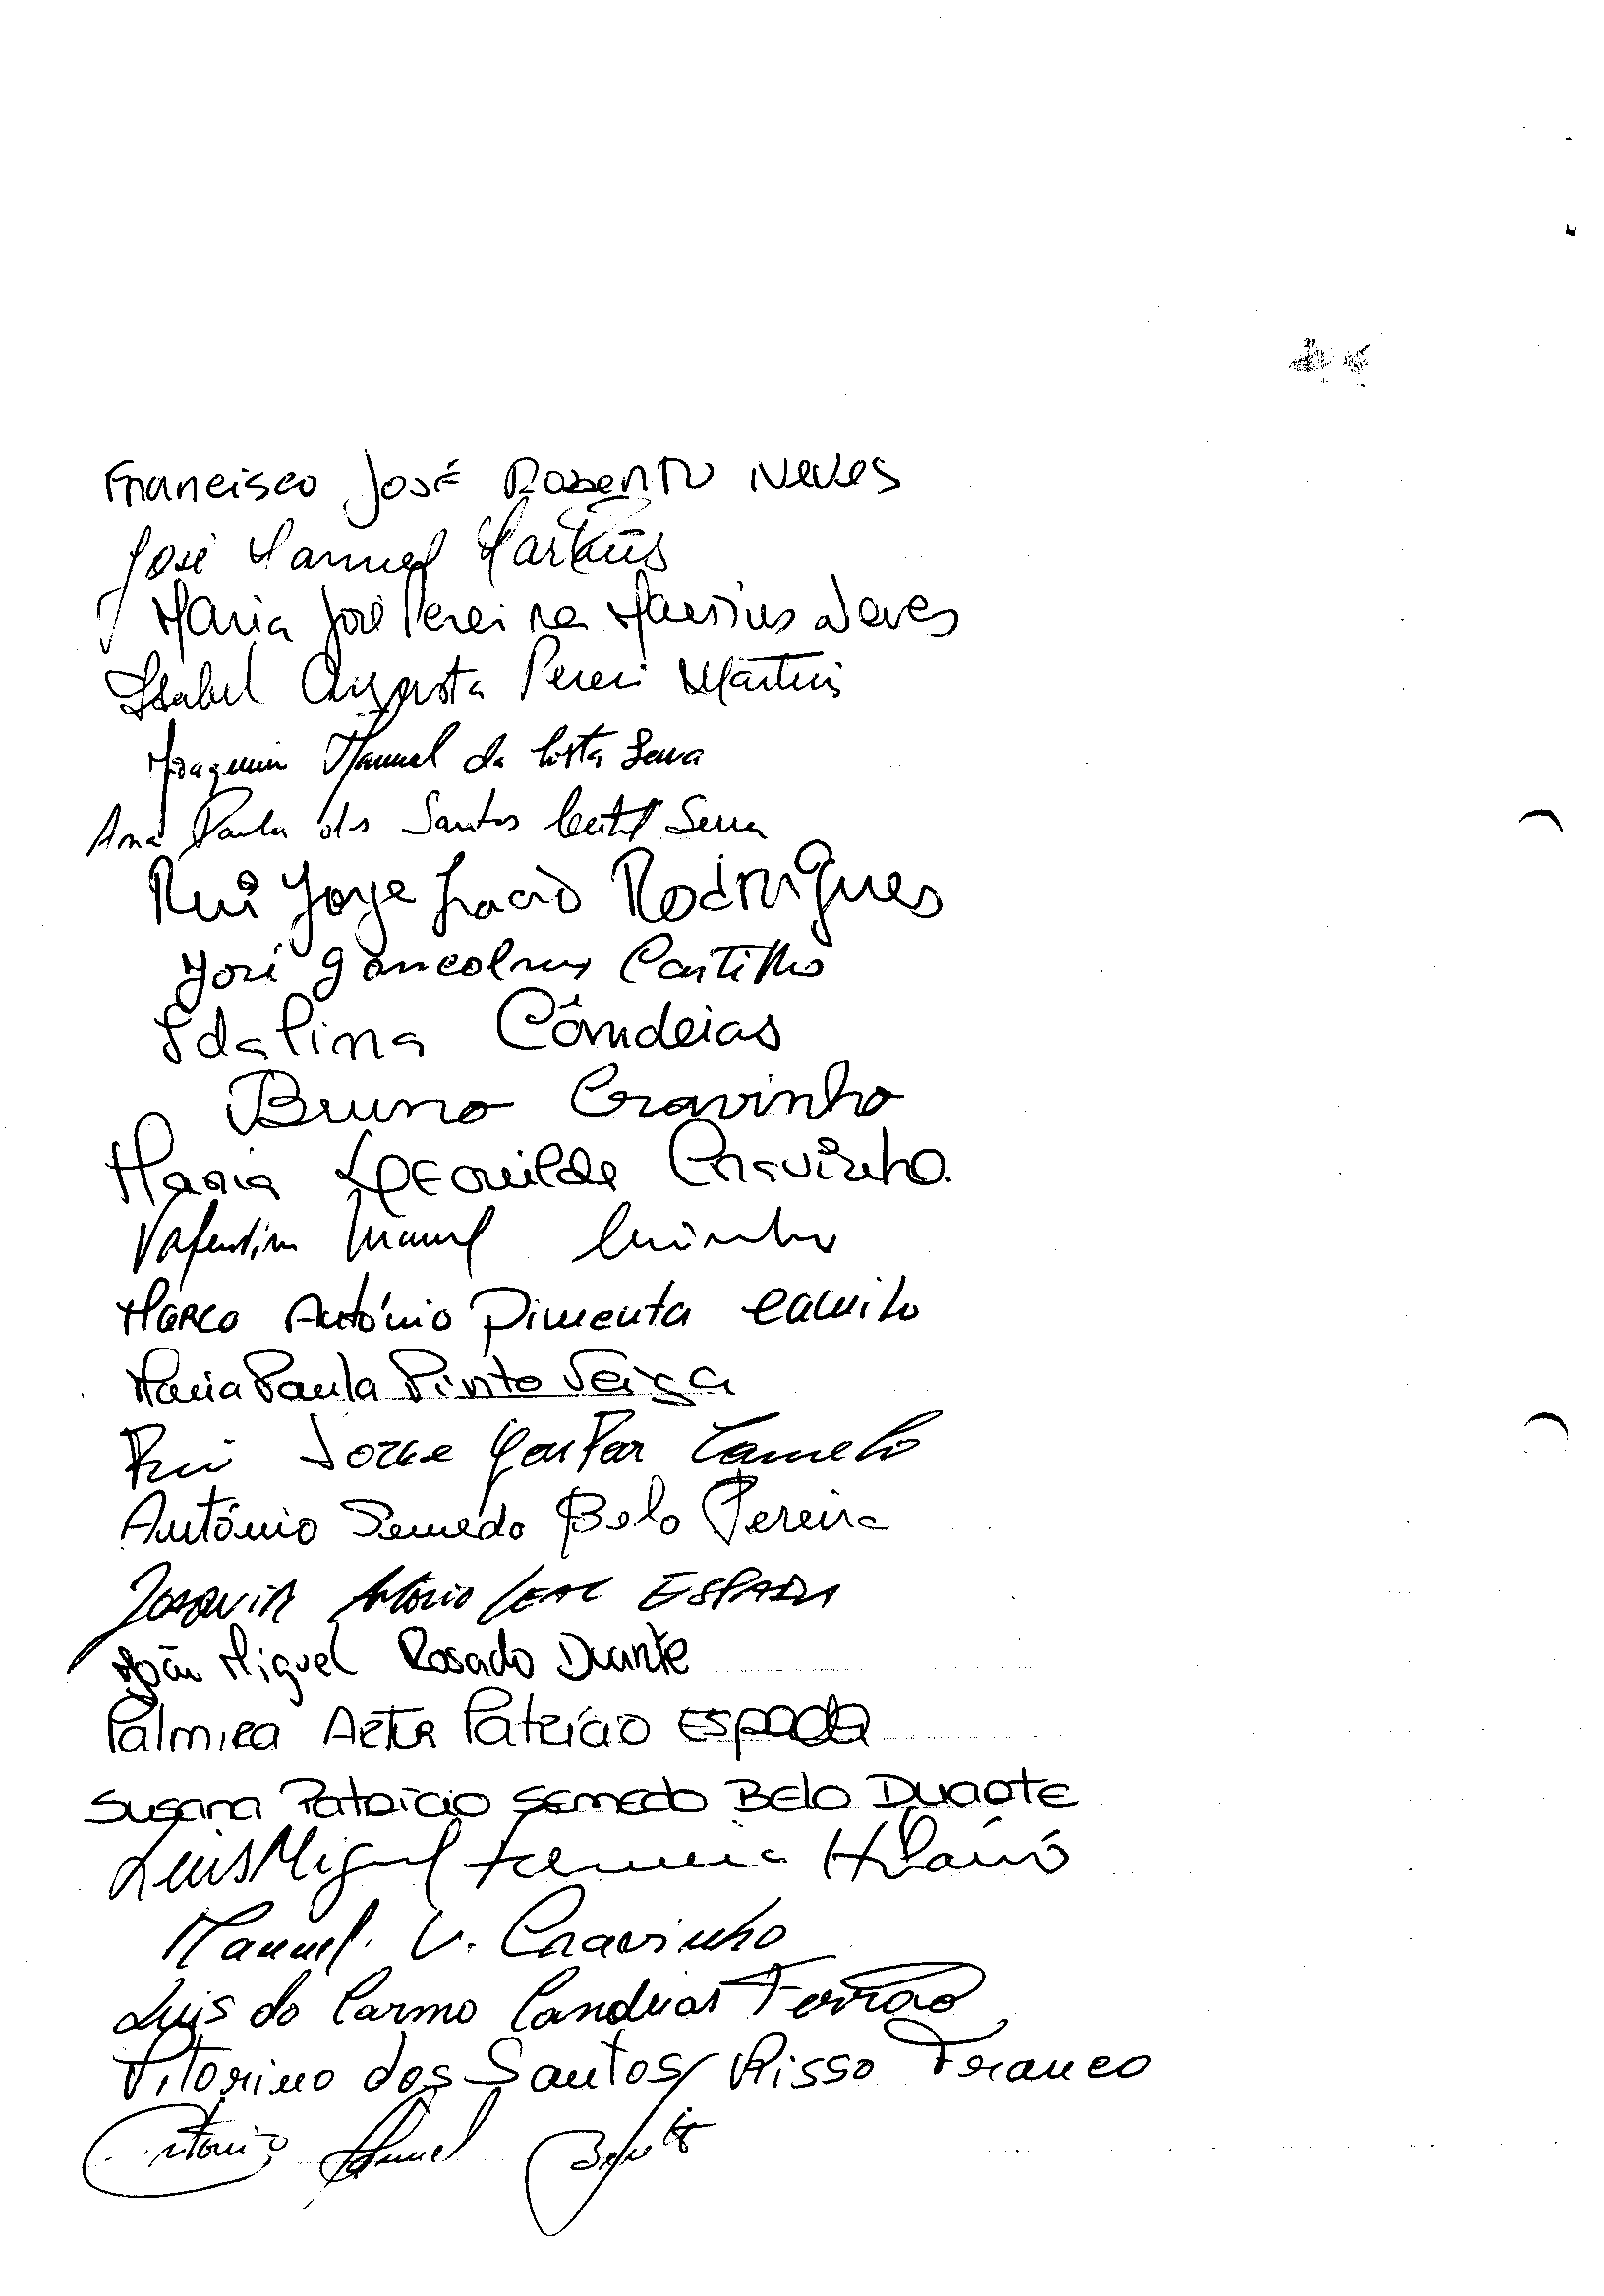 Francisco José Neves
José Manuel Martins
Maria José Pereira Martins Neves
Isabel Augusta Martins
Joaquim Manuel da Costa Serra
Ana Paula dos Santos Serra
Rui Jorge Inacio Rodrigues
José Goncalves Castilho
Idalina Cândeias
Bruno Cravinho
Maria Cravinho
Valentim Manuel
Marco António Pimenta
Maria Paula Pinto Veiga
Rui Jorge Gaspar Camelo
António Semedo Belo Pereira
Joaquim António Leal Espada
João Miguel Rosado Duarte
Palmira Patrício Espada
Susana Patricio Semedo Belo Duarte
Luis Miguel Ferreira Hilário
Manuel V. Cravinho
Luis do Carmo Candeias Ferrão
Vitorino dos Santos Risso Franco
António Manuel